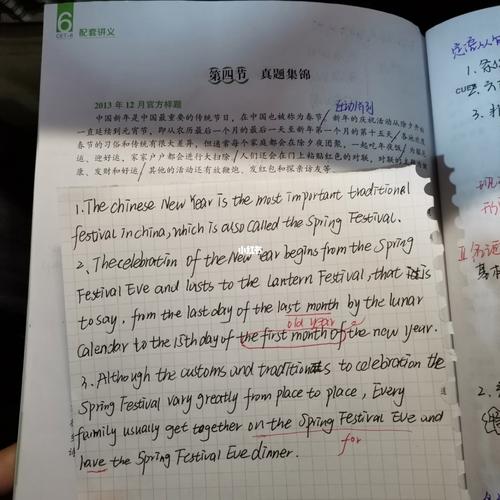 6
CET-6
配套讲义
第四节 真题集锦
2013 年 12 月官方样题
中国新年是中国最重要的传统节日，在中国也被称为春节。新年的庆祝活动从除夕开始
一直延续到元宵节，即从农历最后一个月的最后一天至新年第一个月的第十五天。各地欢度
春节的习俗和传统有很大差异，但通常每个家庭都会在除夕夜团聚，一起吃年夜饭。为驱厄
运、迎好运，家家户户都会进行大扫除。人们还会在门上粘贴红色的对联，对联的主题为健
康、发财和好运。其他的活动还有放鞭炮、发红包和探亲访友等。
1. The chinese New Year is the most important traditional
festival in china, which is also called the Spring Festival.
2. The celebration of the New Year begins from the Spring
Festival Eve and lasts to the Lantern Festival, that is
to say, from the last day of the last month by the lunar
old year
calendar to the 15th day of the first month of the new year.
3. Although the customs and traditions to celebration the
Spring Festival vary greatly from place to place, Every
family usually get together on the Spring Festival Eve and
for
have the Spring Festival Eve dinner.
小红书
定语从句
1.
2.
3.